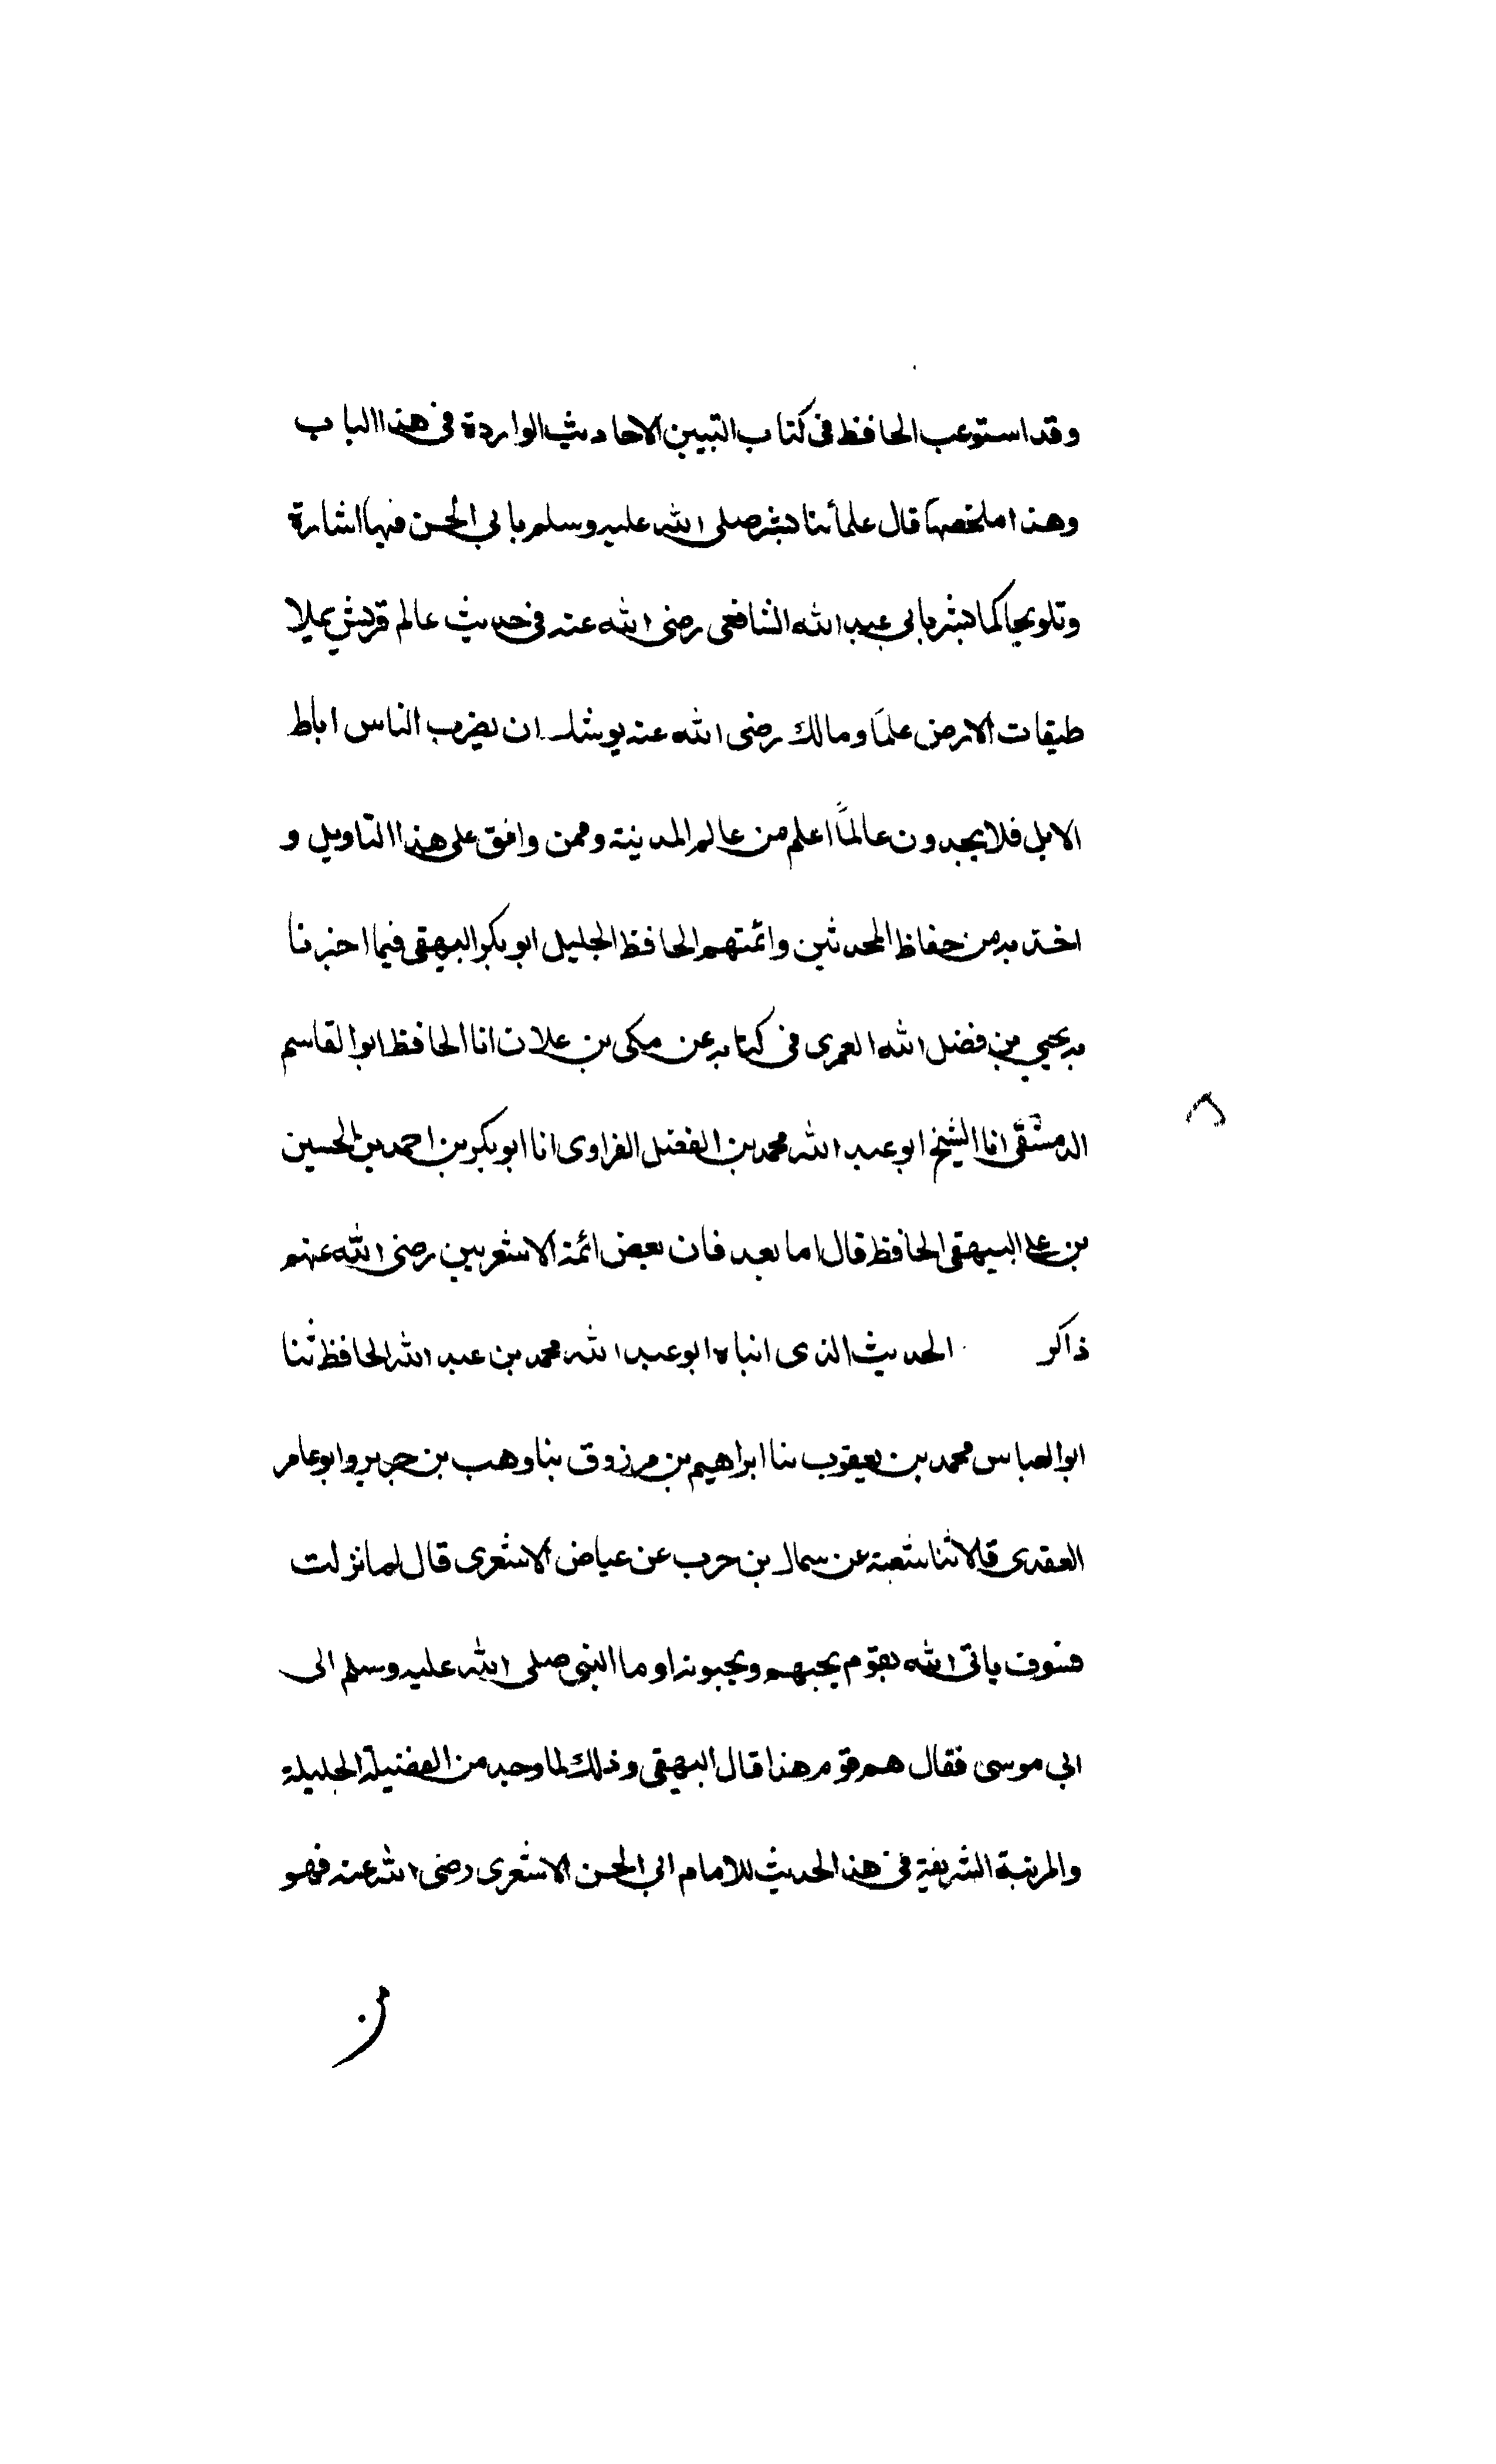 وقد استوعب الحافظ فى كتاب التبيين الاحاديث الواردة فى هذا الباب
وهذا ملخصها قال علمائنا بشر صلى الله عليه وسلم بابي الحسن فيها اشارة
وتلويحا كما بشر بابى عبد الله الشافعى رضى الله عنه فى حديث عالم قريش يملا
طبقات الارض علما ومالك رضى الله عنه يوشك ان يضرب الناس اباط
الابل فلا يجدون عالماً اعلم من عالم المدينة وممن وافق على هذا التاويل و
اخذ به من حفاظ المحدثين وائمتهم الحافظ الجليل ابو بكر البيهقى فيما اخبرنا
به يحيي بن فضل الله العمرى فى كتابه عن مكى بن علان انا الحافظ ابو القاسم
الدمشقى انا الشيخ ابو عبد الله محمد بن الفضل الفراوى انا ابو بكر بن احمد بن الحسين
بن على البيهقى الحافظ قال اما بعد فان بعض ائمة الاشعريين رضى الله عنهم
ذاكر الحديث الذى انباه ابو عبد الله محمد بن عبد الله الحافظ ثنا
ابو العباس محمد بن يعقوب ثنا ابراهيم بن مرزوق ثنا وهب بن جرير وابو عامر
العقدى قالا ثنا شعبة عن سماك بن حرب عن عياض الاشعرى قال لما نزلت
فسوف ياتى الله بقوم يحبهم ويحبونه اوما النبى صلى الله عليه وسلم الى
ابي موسى فقال هم قوم هذا قال البيهقى وذلك لما وجد من الفضيلة الجليلة
والمرتبة الشريفة فى هذا الحديث للامام ابي الحسن الاشعرى رضى الله عنه فهو
من
٨